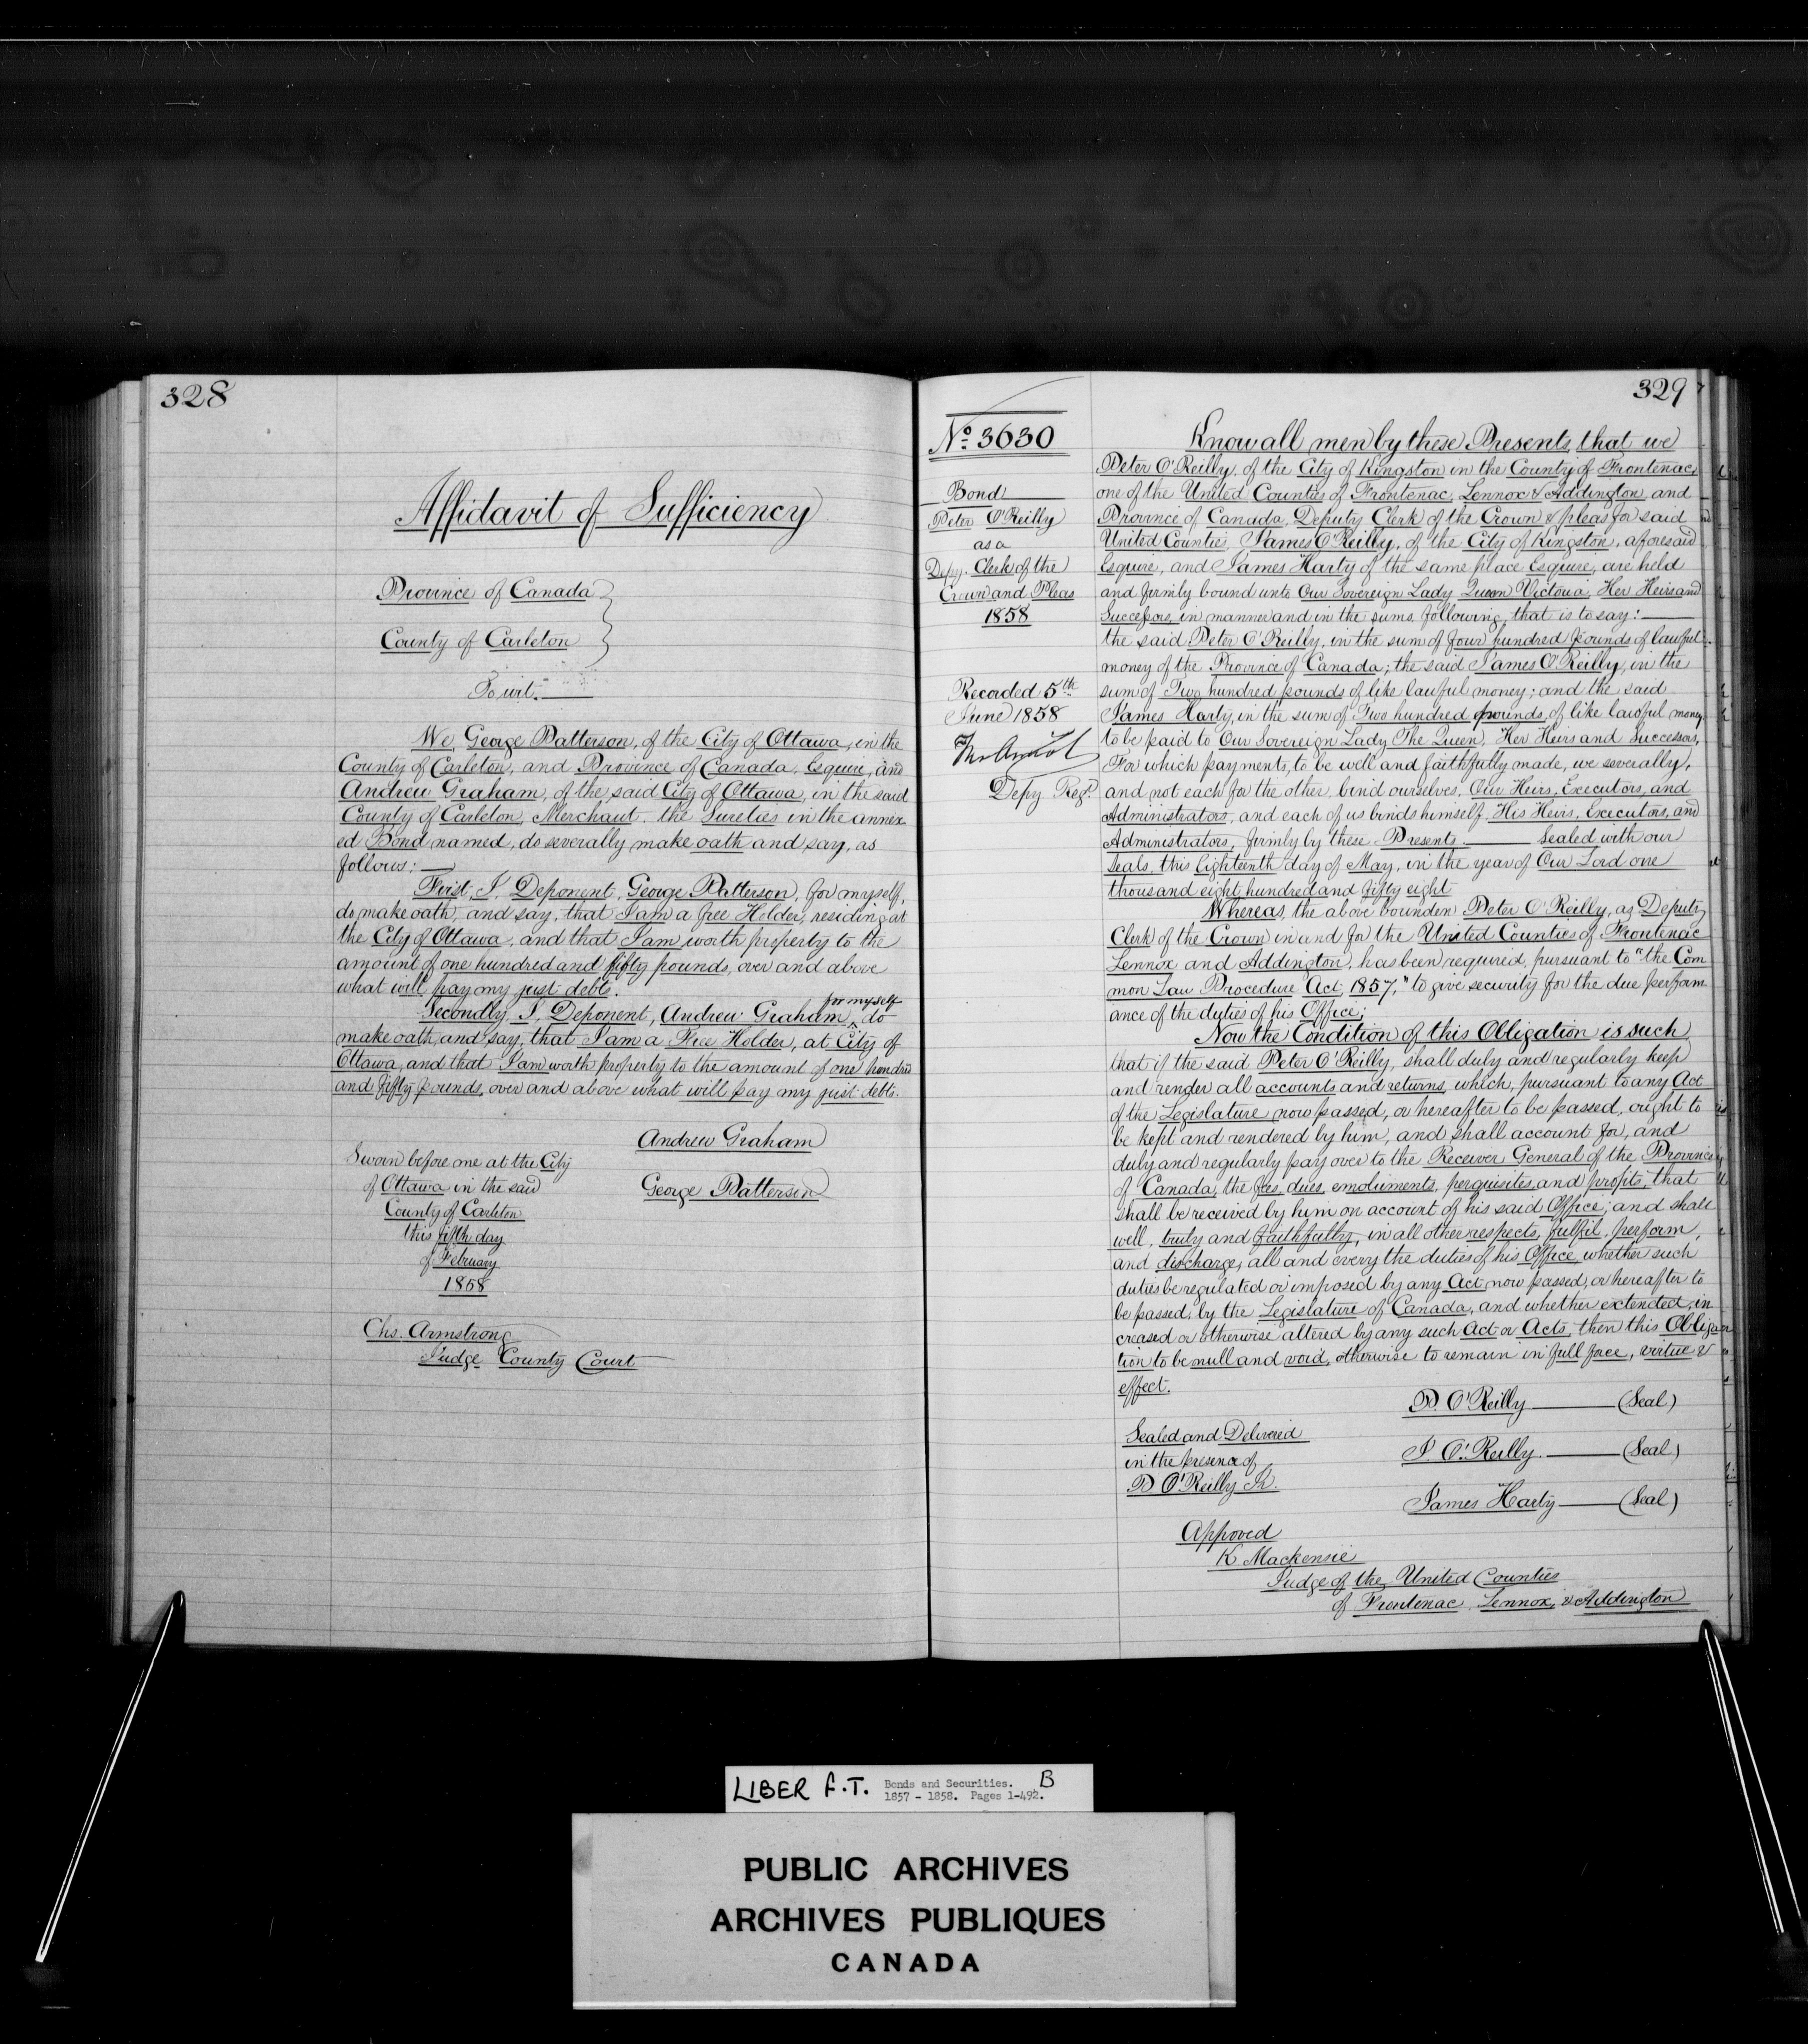 328
Affidavit of Sufficiency
Province of Canada
County of Carleton
To wit:
We, George Patterson, of the City of Ottawa, in the
County of Carleton, and Province of Canada, Esquire, and
Andrew Graham, of the said City of Ottawa, in the said
County of Carleton, Merchant, the Sureties in the annex
ed Bond named, do severally make oath and say, as
follows:
First, I, Deponent, George Patterson, for myself,
do make oath, and say, that I am a free Holder, residing at
the City of Ottawa, and that I am worth property to the
amount of one hundred and fifty pounds, over and above
what will pay my just debts.
Secondly, I, Deponent, Andrew Graham, for myself do
make oath, and say, that I am a Free Holder, at City of
Ottawa, and that I am worth property to the amount of one hundred
and fifty pounds, over and above what will pay my just debts.
Andrew Graham
George Patterson
Sworn before me at the City
of Ottawa in the said
County of Carleton
this fifth day
of February
1858
Chs. Armstrong
Judge County Court
329
No. 3630
Bond
Peter O'Reilly
as a
Depy. Clerk of the
Crown and Pleas
1858
Recorded 5th
June 1858
Depy Regr.
Know all men by these Presents, that we
Peter O'Reilly, of the City of Kingston in the County of Frontenac,
one of the United Counties of Frontenac, Lennox & Addington and
Province of Canada, Deputy Clerk of the Crown & pleas for said
United Counties, James O'Reilly, of the City of Kingston, aforesaid
Esquire, and James Harty of the same place Esquire, are held
and firmly bound unto Our Sovereign Lady Queen Victoria, Her Heirs and
Successors, in manner and in the sums following, that is to say:
the said Peter O'Reilly, in the sum of four hundred pounds of lawful
money of the Province of Canada; the said James O'Reilly, in the
sum of Two hundred pounds of like lawful money; and the said
James Harty, in the sum of Two hundred pounds, of like lawful money
to be paid to Our Sovereign Lady The Queen, Her Heirs and Successors,
For which payments, to be well and faithfully made, we severally,
and not each for the other, bind ourselves, Our Heirs, Executors, and
Administrators, and each of us binds himself, His Heirs, Executors, and
Administrators, firmly by these Presents. Sealed with our
Seals, this Eighteenth day of May, in the year of Our Lord one
thousand eight hundred and fifty eight
Whereas, the above bounden Peter O'Reilly, as Deputy
Clerk of the Crown in and for the United Counties of Frontenac
Lennox and Addington, has been required, pursuant to "the Com
mon Law Procedure Act, 1857," to give security for the due perform
ance of the duties of his Office;
Now the Condition of this Obligation is such,
that if the said Peter O'Reilly, shall duly and regularly keep
and render all accounts and returns, which, pursuant to any Act
of the Legislature now passed, or hereafter to be passed, ought to
be kept and rendered by him, and shall account for, and
duly and regularly pay over to the Receiver General of the Province
of Canada, the fees, dues, emoluments, perquisites, and profits, that
shall be received by him on account of his said Office; and shall
well, truly and faithfully, in all other respects, fulfil, perform,
and discharge, all and every the duties of his Office, whether such
duties be regulated or imposed by any Act now passed, or hereafter to
be passed, by the Legislature of Canada, and whether extended, in
creased or otherwise altered by any such Act or Acts, then this Obliga
tion to be null and void, otherwise to remain in full force, virtue &
effect.
P. O'Reilly (Seal)
J. O'Reilly (Seal)
James Harty (Seal)
Sealed and Delivered
in the presence of
P O'Reilly Jr.
Approved
K. Mackensie
Judge of the United Counties
of Frontenac, Lennox, & Addington
LIBER F.T. Bonds and Securities. B
1857 - 1858. Pages 1-492.
PUBLIC ARCHIVES
ARCHIVES PUBLIQUES
CANADA